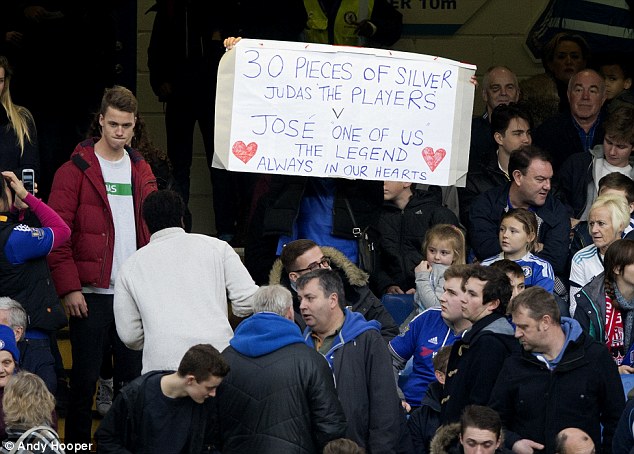 ER 10m
30 PIECES OF SILVER
JUDAS 'THE PLAYERS
V
JOSÉ 'ONE OF US'
THE LEGEND
ALWAYS IN OUR HEARTS
© Andy Hooper